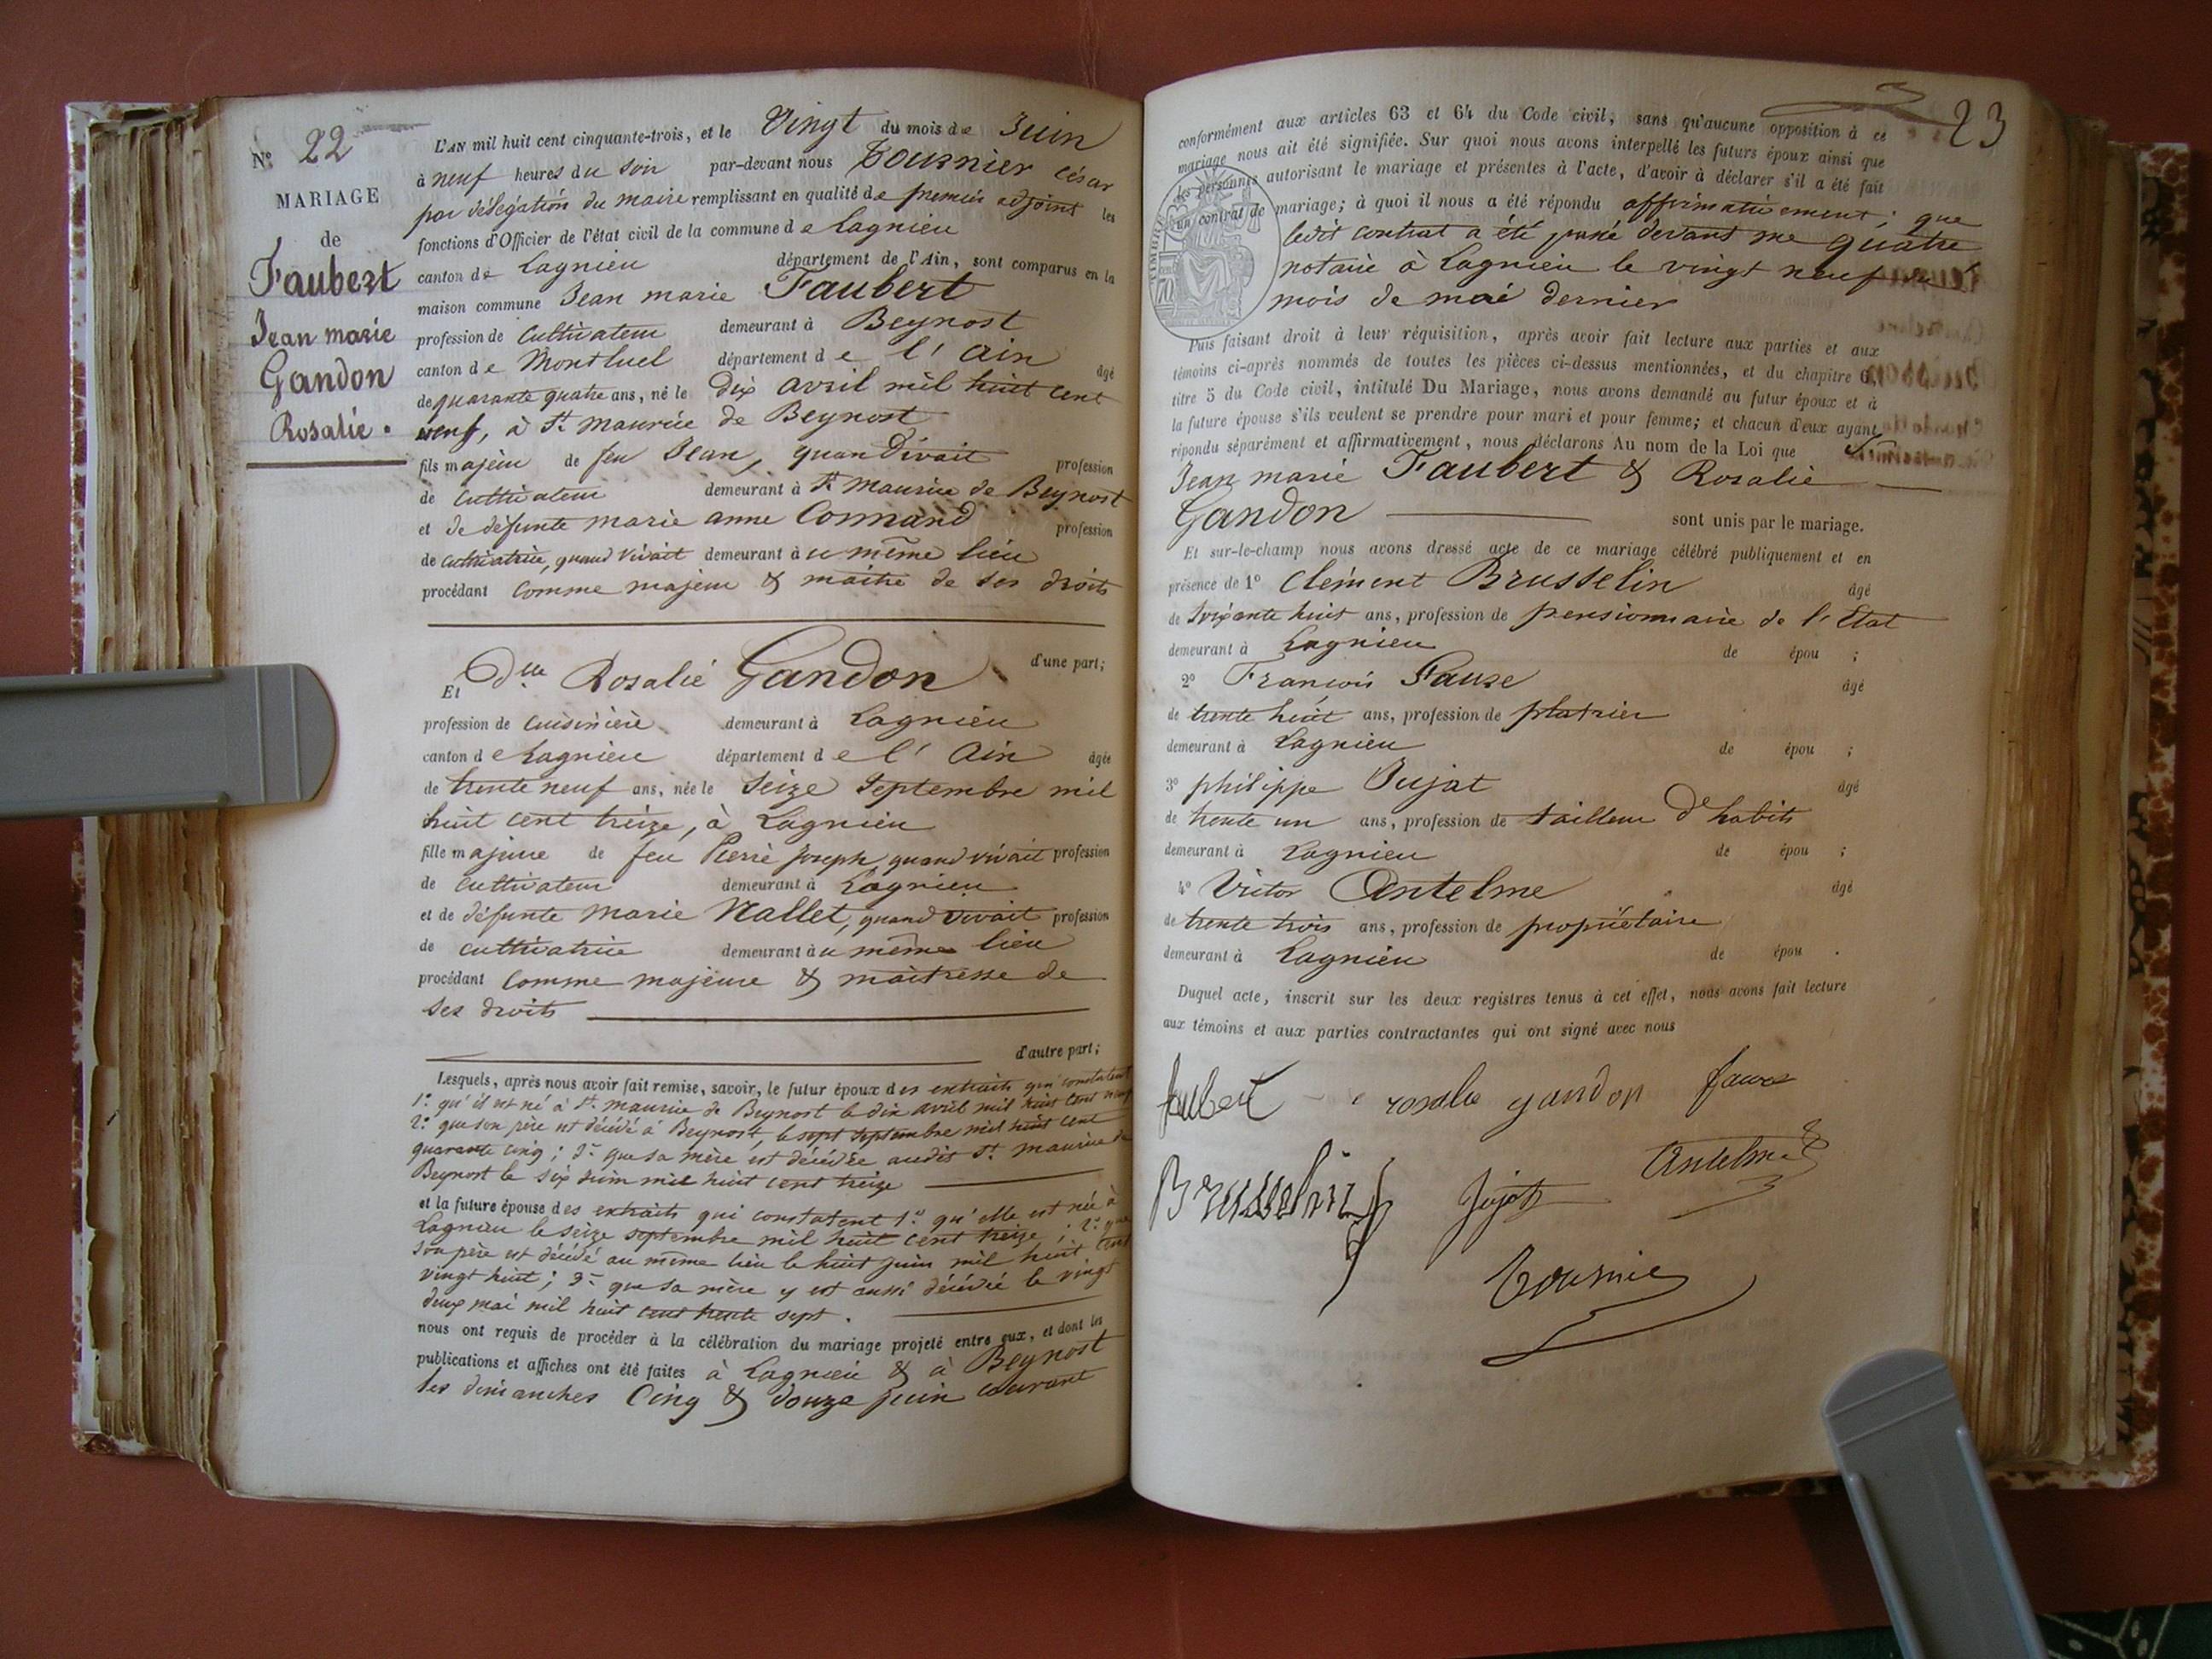 Nº 22
MARIAGE
de
Faubert
Jean marie
Gandon
Rosalie.
L'AN mil huit cent cinquante-trois, et le Vingt du mois de Juin
à neuf heures du soir par-devant nous Tournier César
par délégation du maire remplissant en qualité de premier adjoint les
fonctions d'Officier de l'état civil de la commune de Lagnieu
canton de Lagnieu département de l'Ain, sont comparus en la
maison commune Jean marie Faubert
profession de Cultivateur demeurant à Beynost
canton de Montluel département de l'Ain âgé
de quarante quatre ans, né le dix avril mil huit cent
neuf, à St. Maurice de Beynost
fils majeur de feu Jean, quand vivait profession
de cultivateur demeurant à St. Maurice de Beynost
et de défunte marie anne Connand profession
de cultivatrice, quand vivait demeurant au même lieu
procédant comme majeur & maître de ses droits
d'une part;
Et Dlle Rosalie Gandon
profession de cuisinière demeurant à Lagnieu
canton de Lagnieu département de l'Ain âgée
de trente neuf ans, née le seize Septembre mil
huit cent treize, à Lagnieu
fille majeure de feu Pierre Joseph, quand vivait profession
de cultivateur demeurant à Lagnieu
et de défunte Marie Nallet, quand vivait profession
de cultivatrice demeurant au même lieu
procédant comme majeure & maîtresse de
ses droits
d'autre part;
Lesquels, après nous avoir fait remise, savoir, le futur époux des extraits qui constatent
1º qu'il est né à St. Maurice de Beynost le dix avril mil huit cent neuf
2º que son père est décédé à Beynost, le sept septembre mil huit cent
quarante cinq; 3º que sa mère est décédée audit St. Maurice de
Beynost le six juin mil huit cent treize
et la future épouse des extraits qui constatent 1º qu'elle est née à
Lagnieu le seize septembre mil huit cent treize; 2º que
son père est décédé au même lieu le huit juin mil huit cent
vingt huit; 3º que sa mère y est aussi décédée le vingt
deux mai mil huit cent trente sept.
nous ont requis de procéder à la célébration du mariage projeté entre eux, et dont les
publications et affiches ont été faites à Lagnieu & à Beynost
les dimanches Cinq & douze juin courant
23
conformément aux articles 63 et 64 du Code civil; sans qu'aucune opposition à ce
mariage nous ait été signifiée. Sur quoi nous avons interpellé les futurs époux ainsi que
les personnes autorisant le mariage et présentes à l'acte, d'avoir à déclarer s'il a été fait
un contrat de mariage; à quoi il nous a été répondu affirmativement; que
ledit contrat a été passé devant me quatre
notaire à Lagnieu le vingt neuf du
mois de mai dernier
Puis faisant droit à leur réquisition, après avoir fait lecture aux parties et aux
témoins ci-après nommés de toutes les pièces ci-dessus mentionnées, et du chapitre 6,
titre 5 du Code civil, intitulé Du Mariage, nous avons demandé au futur époux et à
la future épouse s'ils veulent se prendre pour mari et pour femme; et chacun d'eux ayant
répondu séparément et affirmativement, nous déclarons Au nom de la Loi que
Jean marie Faubert & Rosalie
Gandon sont unis par le mariage.
Et sur-le-champ nous avons dressé acte de ce mariage célébré publiquement et en
présence de 1º Clément Brusselin âgé
de soixante huit ans, profession de pensionnaire de l'Etat
demeurant à Lagnieu de épou ;
2º François Fauze âgé
de trente huit ans, profession de platrier
demeurant à Lagnieu de épou ;
3º philippe Jujat âgé
de trente un ans, profession de tailleur d'habits
demeurant à Lagnieu de épou ;
4º Victor Antelme âgé
de trente trois ans, profession de propriétaire
demeurant à Lagnieu de épou .
Duquel acte, inscrit sur les deux registres tenus à cet effet, nous avons fait lecture
aux témoins et aux parties contractantes qui ont signé avec nous
faubert rosalie gandon fauze
Brusselin Jujat Antelme
Tournier